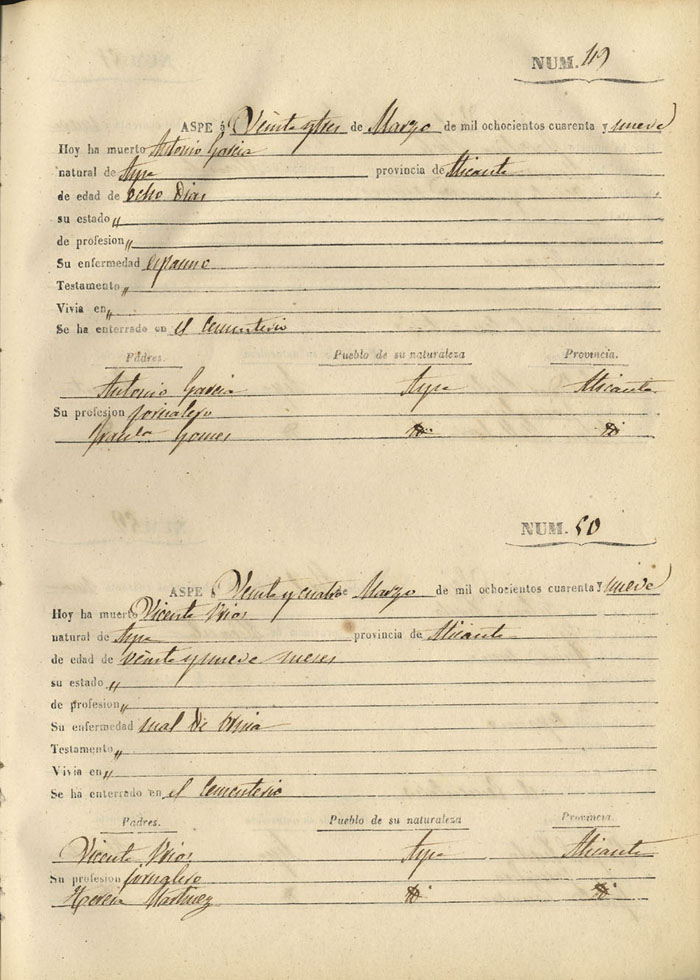 NUM. 49
ASPE á Veinte y tres de Marzo de mil ochocientos cuarenta y nueve
Hoy ha muerto Antonio Garcia
natural de Aspe provincia de Alicante
de edad de ocho Dias
su estado "
de profesion "
Su enfermedad espasmo
Testamento "
Vivia en "
Se ha enterrado en el Cementerio
Padres. Pueblo de su naturaleza Provincia.
Antonio Garcia Aspe Alicante
Su profesion jornalero
Gomes
NUM. 50
ASPE á Veinte y cuatro de Marzo de mil ochocientos cuarenta y nueve
Hoy ha muerto Vicente Rios
natural de Aspe provincia de Alicante
de edad de veinte y nueve meses
su estado "
de profesion "
Su enfermedad mal de orina
Testamento "
Vivia en "
Se ha enterrado en el Cementerio
Padres. Pueblo de su naturaleza Provincia.
Vicente Rios Aspe Alicante
Su profesion jornalero
Martinez